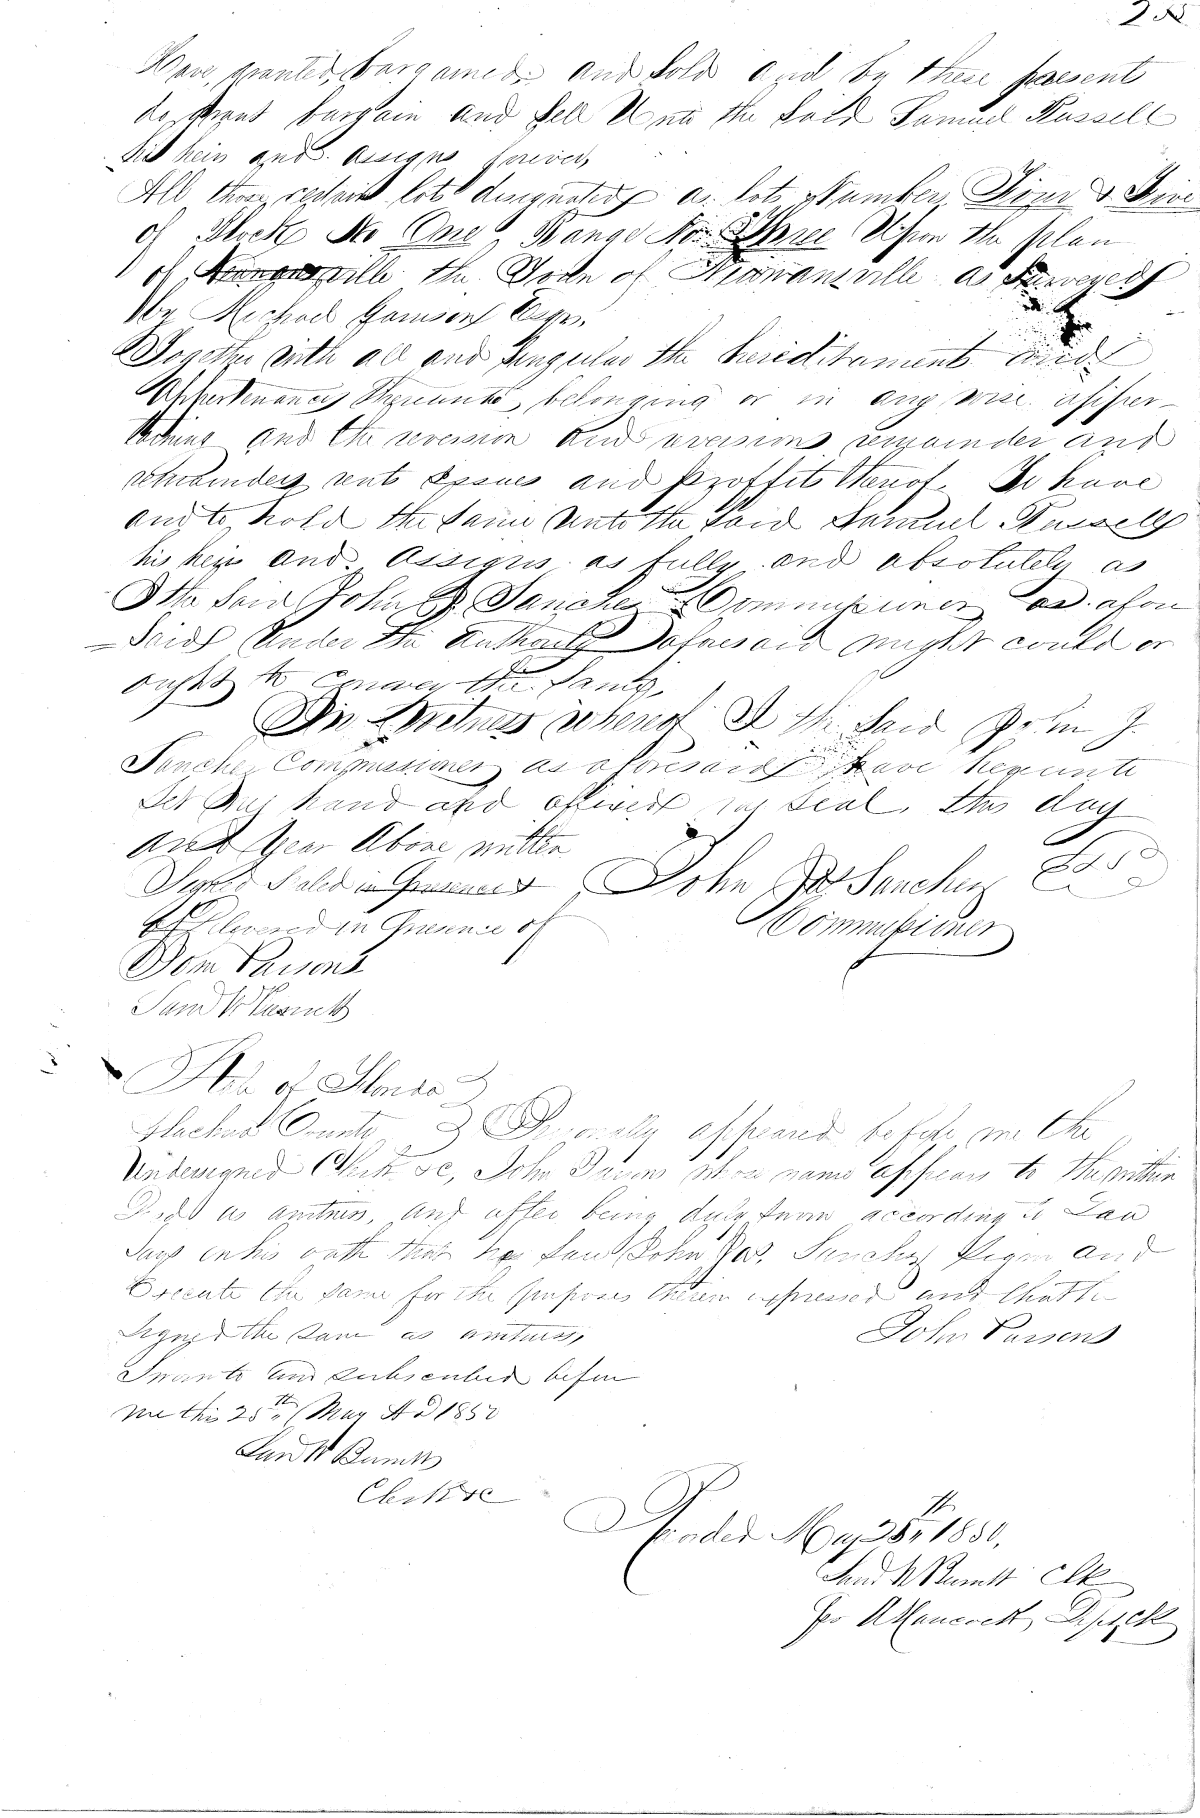 Have granted, bargained, and Sold and by these present
do grant bargain and Sell Unto the Said Samuel Russell
his heirs and assigns forever,
All those certain lots designated as lots Number Four & Five
of Block No One, Range No. Three Upon the plan
of Newnansville the Town of Newnansville as Surveyed
by Michael Garrison Esqr.
Together with all and Singular the hereditaments and
Appertenances thereunto belonging or in any wise apper-
taining and the reversion and reversions remainder and
remainders rents issues and proffits thereof. To have
and to hold the Same Unto the Said Samuel Russell
his heirs and assigns as fully and absolutely as
I the Said John J. Sanchez Commissioner as afore
=Said Under the Authority aforesaid might could or
ought to convey the Same.
In Witness whereof I the Said John J.
Sanchez Commissioner as aforesaid have hereunto
Set my hand and affixed my Seal, this day
and Year Above written
Signed Sealed in Presence &
Delivered in Presence of
John Jas Sanchez
Commissioner
John Parsons
Saml W Burnett
State of Florida
Alachua County Personally appeared before me the
Undersigned Clerk &c, John Parsons whose name appears to the within
Deed as a witness, and after being duly Sworn according to Law
Says on his oath that he Saw John Jas. Sanchez Sign and
Execute the same for the purposes therein expressed and that he
Signed the Same as a witness,
John Parsons
Sworn to and subscribed before
me this 25th May AD 1850
Saml W Burnett
Clerk &c
Recorded May 25th 1850.
Saml W Burnett Clk
Hancock, Dept. Clk